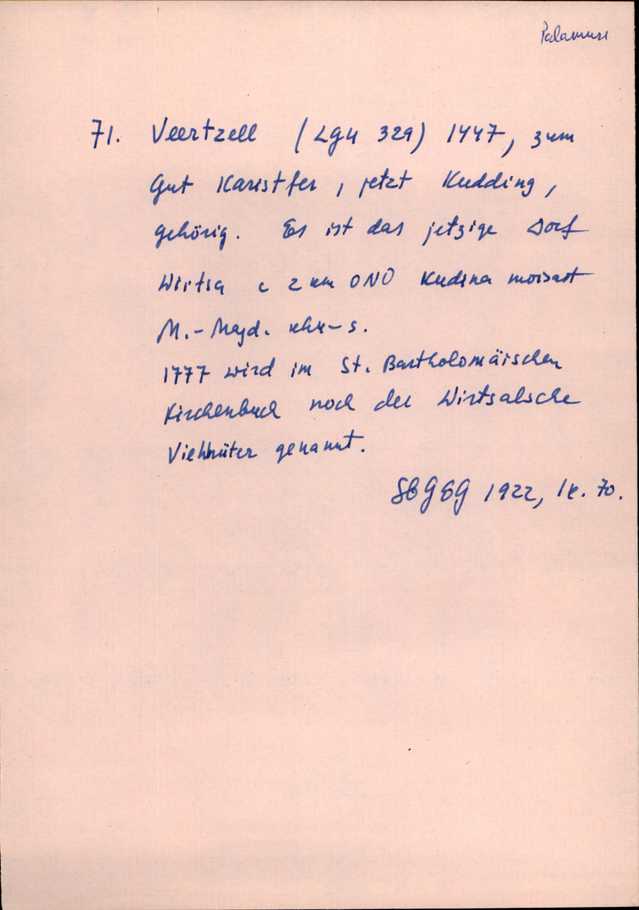 Palamuse
71. Veertzell (LGU 329) 1447, zum
Gut Karistfer, jetzt Kudding,
gehörig. Es ist das jetzige Dorf
Wirtsa c 2 km ONO Kudina moisast
M.-Magd. khk-s.
1777 wird im St. Bartholomäischen
Kirchenbuch noch der Wirtsalsche
Viehhüter genannt.
SbGEG 1922, lk. 70.